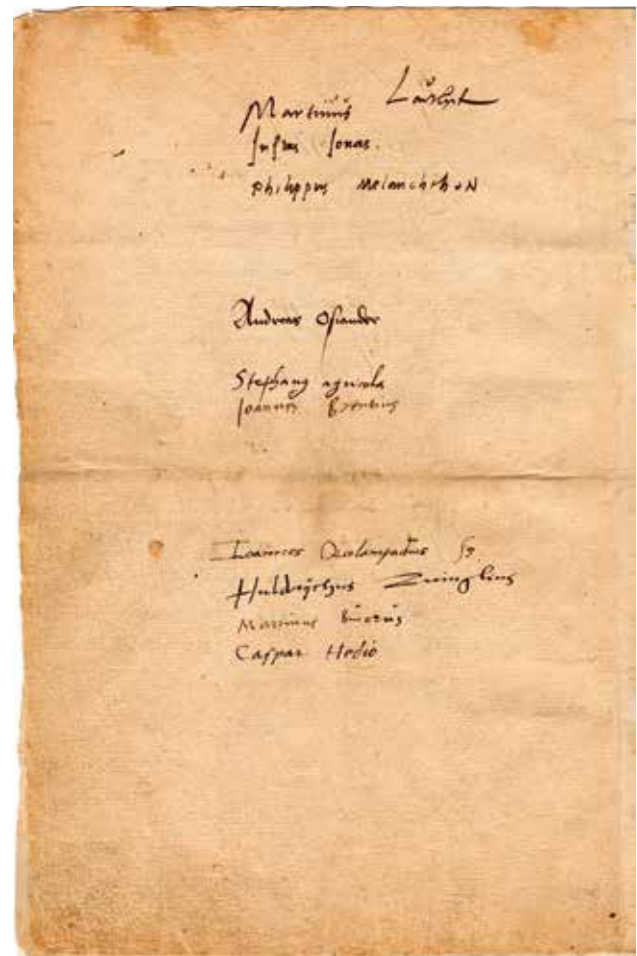 Martinus Luther
Justus Jonas.
Philippus MelanchthoN
Andreas Osiander
Stephanus agricola
Joannes Brentius
Ioannes Oecolampadius ss.
Huldrychus Zuinglius
Martinus Bucerus
Caspar Hedio